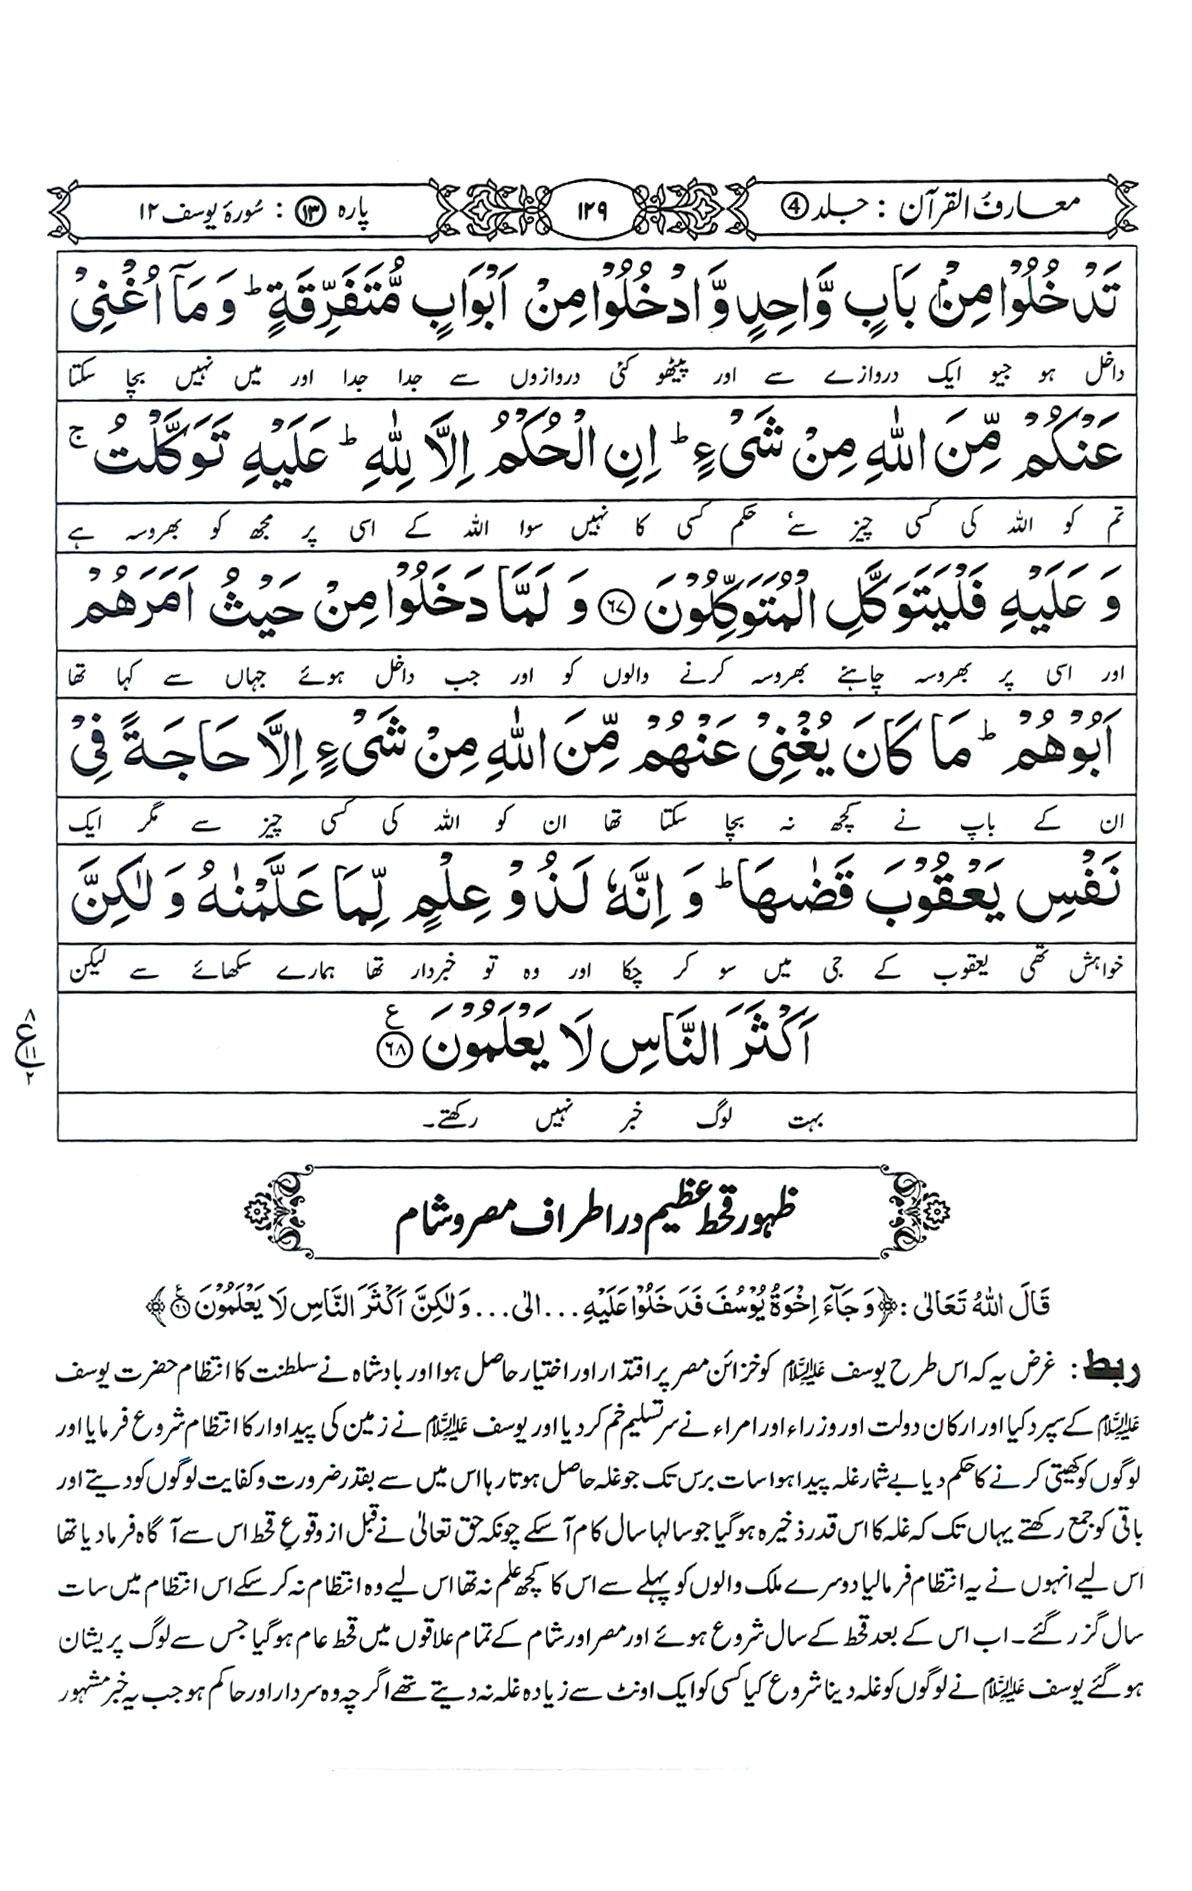 معارف القرآن : جلد ④
۱۲۹
پارہ ⑬ : سُورۂ یوسف ۱۲
تَدْخُلُوْا مِنْۢ بَابٍ وَّاحِدٍ وَّادْخُلُوْا مِنْ اَبْوَابٍ مُّتَفَرِّقَةٍ ؕ وَمَآ اُغْنِیْ
داخل ہو جیو ایک دروازے سے اور پیٹھو کئی دروازوں سے جدا جدا اور میں نہیں بچا سکتا
عَنْكُمْ مِّنَ اللّٰهِ مِنْ شَیْءٍ ؕ اِنِ الْحُكْمُ اِلَّا لِلّٰهِ ؕ عَلَیْهِ تَوَكَّلْتُ ۚ
تم کو اللہ کی کسی چیز سے حکم کسی کا نہیں سوا اللہ کے اسی پر مجھ کو بھروسہ ہے
وَعَلَیْهِ فَلْیَتَوَكَّلِ الْمُتَوَكِّلُوْنَ ﴿۶۷﴾ وَلَمَّا دَخَلُوْا مِنْ حَیْثُ اَمَرَهُمْ
اور اسی پر بھروسہ چاہئے بھروسہ کرنے والوں کو اور جب داخل ہوئے جہاں سے کہا تھا
اَبُوْهُمْ ؕ مَا كَانَ یُغْنِیْ عَنْهُمْ مِّنَ اللّٰهِ مِنْ شَیْءٍ اِلَّا حَاجَةً فِیْ
ان کے باپ نے کچھ نہ بچا سکتا تھا ان کو اللہ کی کسی چیز سے مگر ایک
نَفْسِ یَعْقُوْبَ قَضٰىهَا ؕ وَاِنَّهٗ لَذُوْ عِلْمٍ لِّمَا عَلَّمْنٰهُ وَلٰكِنَّ
خواہش تھی یعقوب کے جی میں سو کر چکا اور وہ تو خبردار تھا ہمارے سکھائے سے لیکن
اَكْثَرَ النَّاسِ لَا یَعْلَمُوْنَ ﴿۶۸﴾ ع
۸
ع
۱۱
۲
بہت لوگ خبر نہیں رکھتے۔
ظہور قحط عظیم در اطراف مصر و شام
قَالَ اللّٰهُ تَعَالٰی : ﴿وَجَآءَ اِخْوَةُ یُوْسُفَ فَدَخَلُوْا عَلَیْهِ ... الٰی ... وَلٰكِنَّ اَكْثَرَ النَّاسِ لَا یَعْلَمُوْنَ ۶۸﴾
ربط : غرض یہ کہ اس طرح یوسف علیہ السلام کو خزائن مصر پر اقتدار اور اختیار حاصل ہوا اور بادشاہ نے سلطنت کا انتظام حضرت یوسف
علیہ السلام کے سپرد کیا اور ارکان دولت اور وزراء اور امراء نے سر تسلیم خم کر دیا اور یوسف علیہ السلام نے زمین کی پیداوار کا انتظام شروع فرمایا اور
لوگوں کو کھیتی کرنے کا حکم دیا بے شمار غلہ پیدا ہوا سات برس تک جو غلہ حاصل ہوتا رہا اس میں سے بقدر ضرورت و کفایت لوگوں کو دیتے اور
باقی کو جمع رکھتے یہاں تک کہ غلہ کا اس قدر ذخیرہ ہوگیا جو سالہا سال کام آسکے چونکہ حق تعالیٰ نے قبل از وقوع قحط اس سے آگاہ فرما دیا تھا
اس لیے انہوں نے یہ انتظام فرمالیا دوسرے ملک والوں کو پہلے سے اس کا کچھ علم نہ تھا اس لیے وہ انتظام نہ کر سکے اس انتظام میں سات
سال گزر گئے۔ اب اس کے بعد قحط کے سال شروع ہوئے اور مصر اور شام کے تمام علاقوں میں قحط عام ہوگیا جس سے لوگ پریشان
ہوگئے یوسف علیہ السلام نے لوگوں کو غلہ دینا شروع کیا کسی کو ایک اونٹ سے زیادہ غلہ نہ دیتے تھے اگرچہ وہ سردار اور حاکم ہو جب یہ خبر مشہور